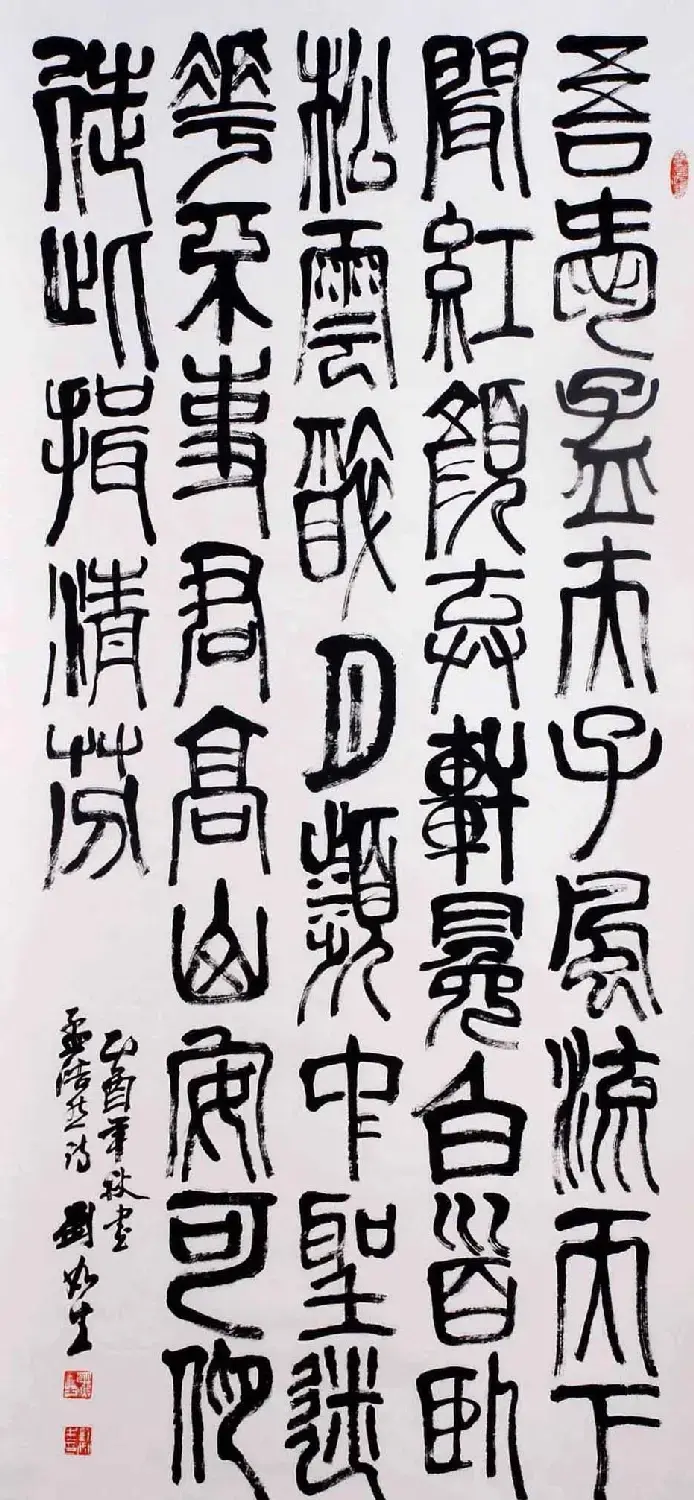 吾愛孟夫子風流天下
聞紅顏弃軒冕白首卧
松雲醉月頻中聖迷
華不事君高山安可仰
徒此揖清芬
乙酉年秋書
孟浩然詩 劉如生